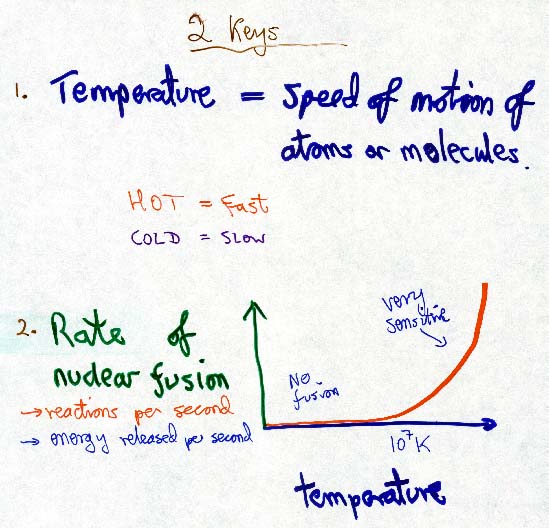 2 Keys
1. Temperature = Speed of motion of
atoms or molecules.
HOT = Fast
COLD = SLOW
2. Rate of
nuclear fusion
→ reactions per second
→ energy released per second
very
sensitive
No
fusion
10⁷K
temperature